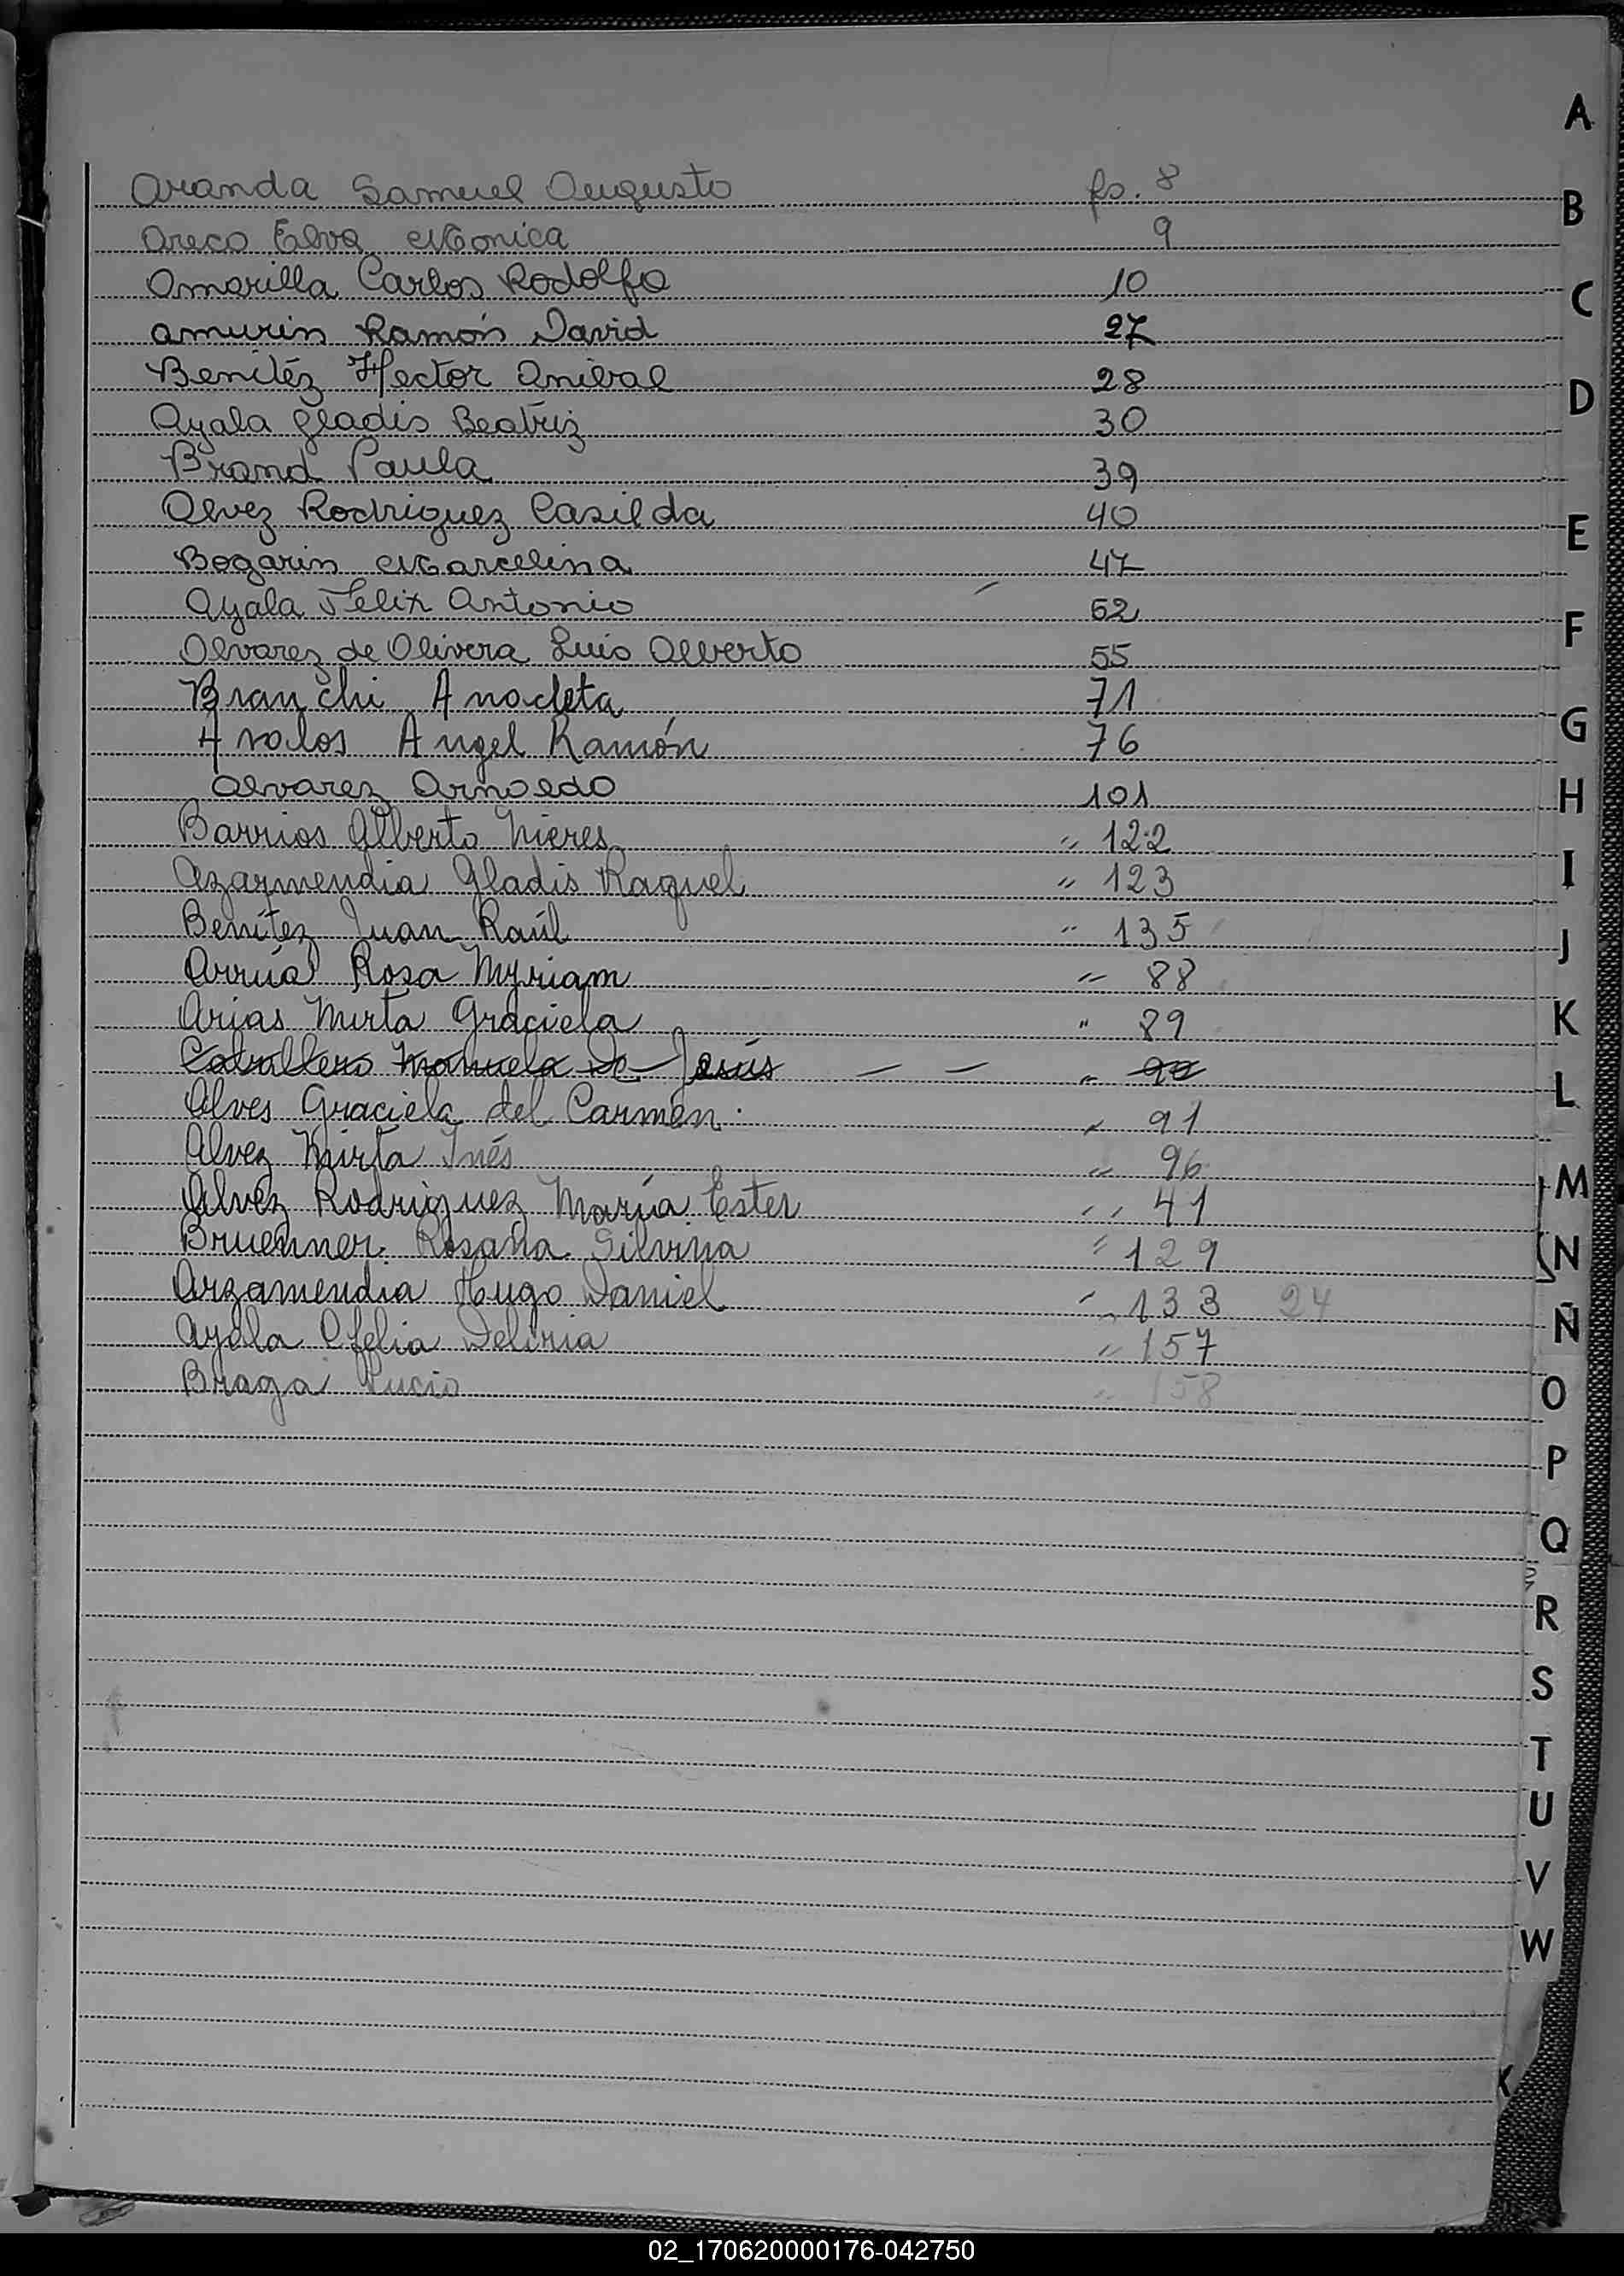 Aranda Samuel Augusto fs. 8
Areco Elva Monica 9
Amarilla Carlos Rodolfo 10
Amurin Ramón David 27
Benitéz Hector Anibal 28
Ayala Gladis Beatriz 30
Brand Paula 39
Alvez Rodriguez Casilda 40
Bogarin Marcelina 47
Ayala Felix Antonio 52
Alvarez de Olivera Luis Alberto 55
Branchi Anacleta 71
Avalos Angel Ramón 76
Alvarez Arnoldo 101
Barrios Alberto Nieres " 122
Azarmendia Gladis Raquel " 123
Benítez Juan Raúl " 135
Arrúa Rosa Myriam " 88
Arias Mirta Graciela " 89
Caballero Manuela De Jesús — — " 90
Alves Graciela del Carmen. " 91
Alvez Mirta Inés " 96
Alvez Rodriguez María Ester " 41
Bruenner Rosana Silvina " 129
Arzamendia Hugo Daniel " 133 24
Ayala Ofelia Delcria " 157
Braga Lucio " 158
A
B
C
D
E
F
G
H
I
J
K
L
M
N
Ñ
O
P
Q
R
S
T
U
V
W
X
02_170620000176-042750